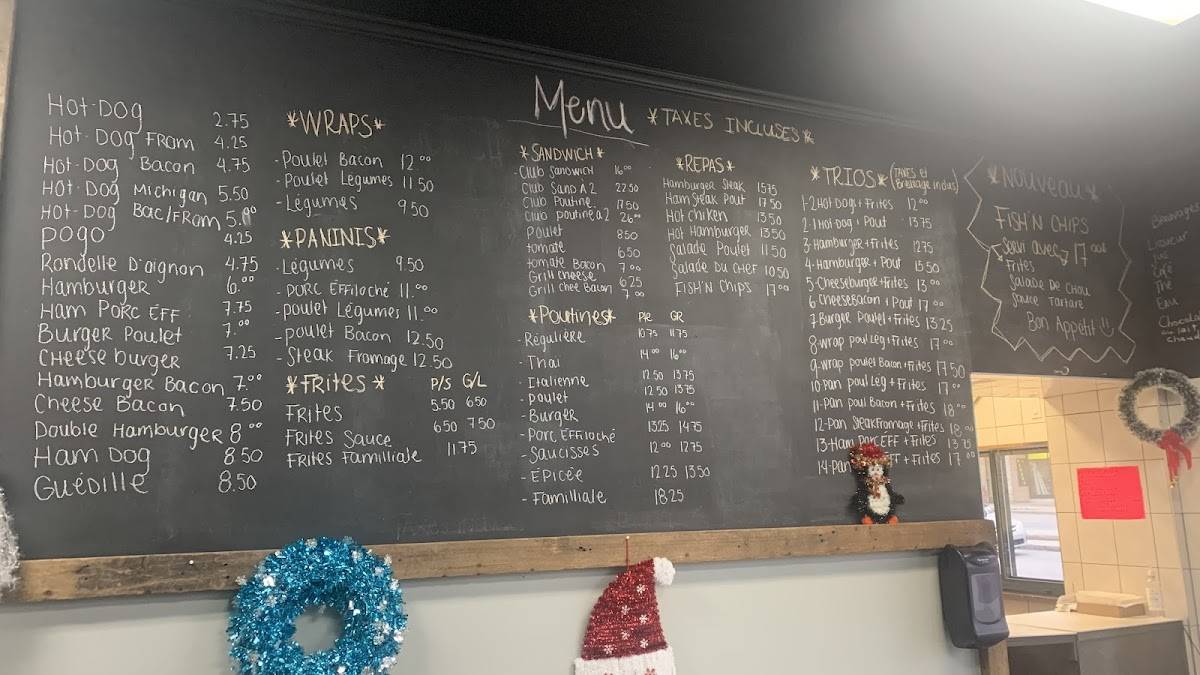 Menu
*TAXES INCLUSES*
HOT-DOG 2.75
HOT-DOG FROM 4.25
HOT-DOG BACON 4.75
HOT-DOG MICHIGAN 5.50
HOT-DOG BAC/FROM 5.00
POGO 4.25
RONDELLE D'OIGNON 4.75
HAMBURGER 6.00
HAM PORC EFF 7.75
BURGER POULET 7.00
CHEESE BURGER 7.25
HAMBURGER BACON 7.00
CHEESE BACON 7.50
DOUBLE HAMBURGER 8.00
HAM DOG 8.50
GUÉDILLE 8.50
*WRAPS*
-POULET BACON 12.00
-POULET LÉGUMES 11.50
-LÉGUMES 9.50
*PANINIS*
-LÉGUMES 9.50
-PORC EFFILOCHÉ 11.00
-POULET LÉGUMES 11.00
-POULET BACON 12.50
-STEAK FROMAGE 12.50
*FRITES* P/S G/L
FRITES 5.50 6.50
FRITES SAUCE 6.50 7.50
FRITES FAMILLIALE 11.75
*SANDWICH*
-CLUB SANDWICH 16.00
CLUB SAND A2 22.50
CLUB POUTINE 17.50
CLUB POUTINE A2 26.00
POULET 8.50
TOMATE 6.50
TOMATE BACON 7.00
GRILL CHEESE 6.25
GRILL CHEE BACON 7.00
*POUTINES* PTE GR
-RÉGULIÈRE 10.75 11.75
-THAI 14.00 16.00
-ITALIENNE 12.50 13.75
-POULET 12.50 13.75
-BURGER 14.00 16.00
-PORC EFFILOCHÉ 13.25 14.75
-SAUCISSES 12.00 12.75
-ÉPICÉE 12.25 13.50
-FAMILLIALE 18.25
*REPAS*
HAMBURGER STEAK 15.75
HAM STEAK POUT 17.50
HOT CHIKEN 13.50
HOT HAMBURGER 13.50
SALADE POULET 11.50
SALADE DU CHEF 10.50
FISH'N CHIPS 17.00
*TRIOS* (TAXES ET Breuvage inclus)
1-2 HOT DOGS + FRITES 12.00
2-1 HOT-DOG + POUT 13.75
3-HAMBURGER + FRITES 12.75
4-HAMBURGER + POUT 15.50
5-CHEESEBURGER + FRITES 13.00
6 CHEESEBACON + POUT 17.00
7 BURGER POULET + FRITES 13.25
8-WRAP POUL LEG + FRITES 17.00
9-WRAP POULET BACON + FRITES 17.50
10 PAN POUL LEG + FRITES 17.00
11-PAN POUL BACON + FRITES 18.00
12-PAN STEAK FROMAGE + FRITES 18.00
13-HAM PORC EFF + FRITES 13.75
14-PAN FF + FRITES 17.00
*NOUVEAU*
FISH'N CHIPS
Servi avec 17.00
Frites
SALADE DE CHOU
Sauce Tartare
Bon Appétit
Breuvages
Liqueur
Jus
Café
Thé
Eau
Chocolat
au lait
chaud